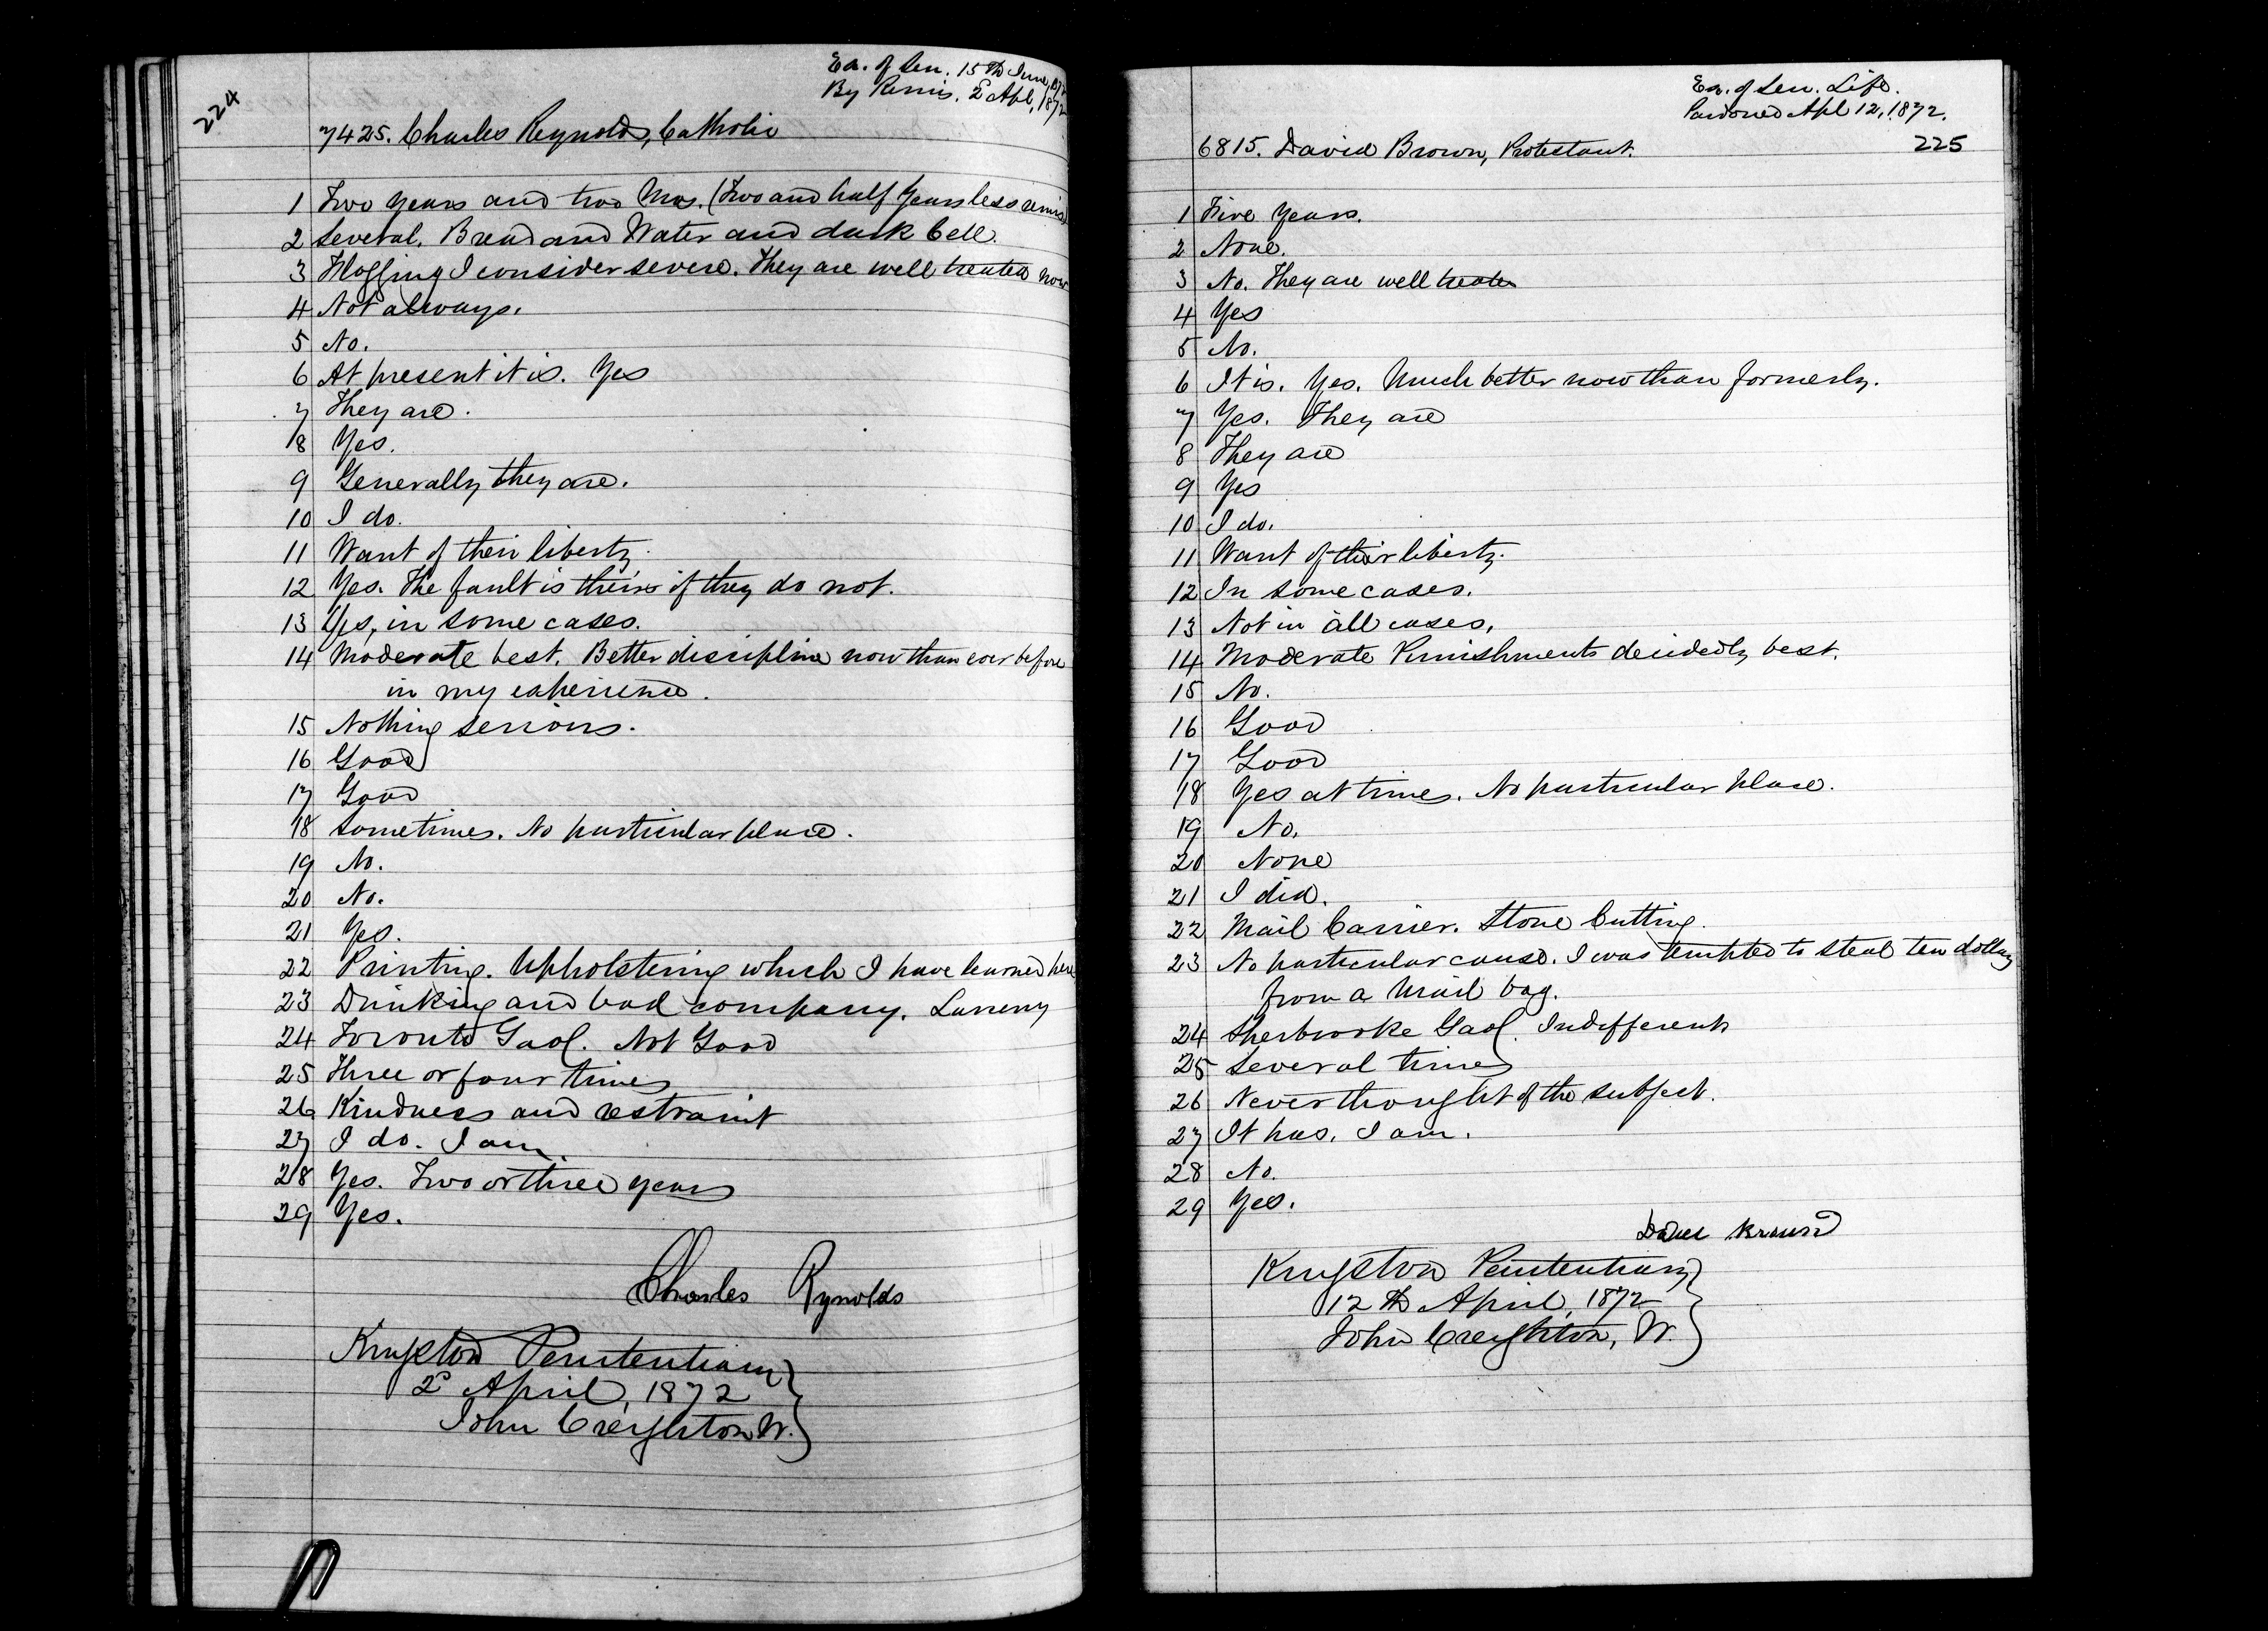 224
Ex. of Sen. 15th June, 1872
By Remis. 2d Apl, 1872
7425. Charles Reynolds, Catholic
1 Two years and two Mos. (Two and half Years less remis)
2 Several. Bread and Water and dark Cell.
3 Flogging I consider severe. They are well treated now
4 Not always.
5 No.
6 At present it is. Yes
7 They are.
8 Yes.
9 Generally they are.
10 I do.
11 Want of their liberty.
12 Yes. The fault is theirs if they do not.
13 Yes, in some cases.
14 Moderate best. Better discipline now than ever before
in my experience.
15 Nothing serious.
16 Good
17 Good
18 Sometimes. No particular place.
19 No.
20 No.
21 Yes.
22 Printing. Upholstering which I have learned here
23 Drinking and bad company. Larceny
24 Toronto Gaol. Not Good
25 Three or four times
26 Kindness and restraint
27 I do. I am.
28 Yes. Two or three years
29 Yes.
Charles Reynolds
Kingston Penitentiary
2d April, 1872
John Creighton W.
Ex. of Sen. Life.
Pardoned Apl 12, 1872.
225
6815. David Brown, Protestant.
1 Five Years.
2 None.
3 No. They are well treated
4 Yes
5 No.
6 It is. Yes. Much better now than formerly.
7 Yes. They are
8 They are
9 Yes
10 I do.
11 Want of their liberty.
12 In some cases.
13 Not in all cases.
14 Moderate Punishments decidedly best.
15 No.
16 Good
17 Good
18 Yes at times. No particular place.
19 No.
20 None
21 I did.
22 Mail Carrier. Stone Cutting.
23 No particular cause. I was tempted to steal ten dollars
from a Mail bag.
24 Sherbrooke Gaol. Indifferent
25 Several times
26 Never thought of the subject.
27 It has. I am.
28 No.
29 Yes.
David Brown
Kingston Penitentiary
12th April, 1872
John Creighton, W.